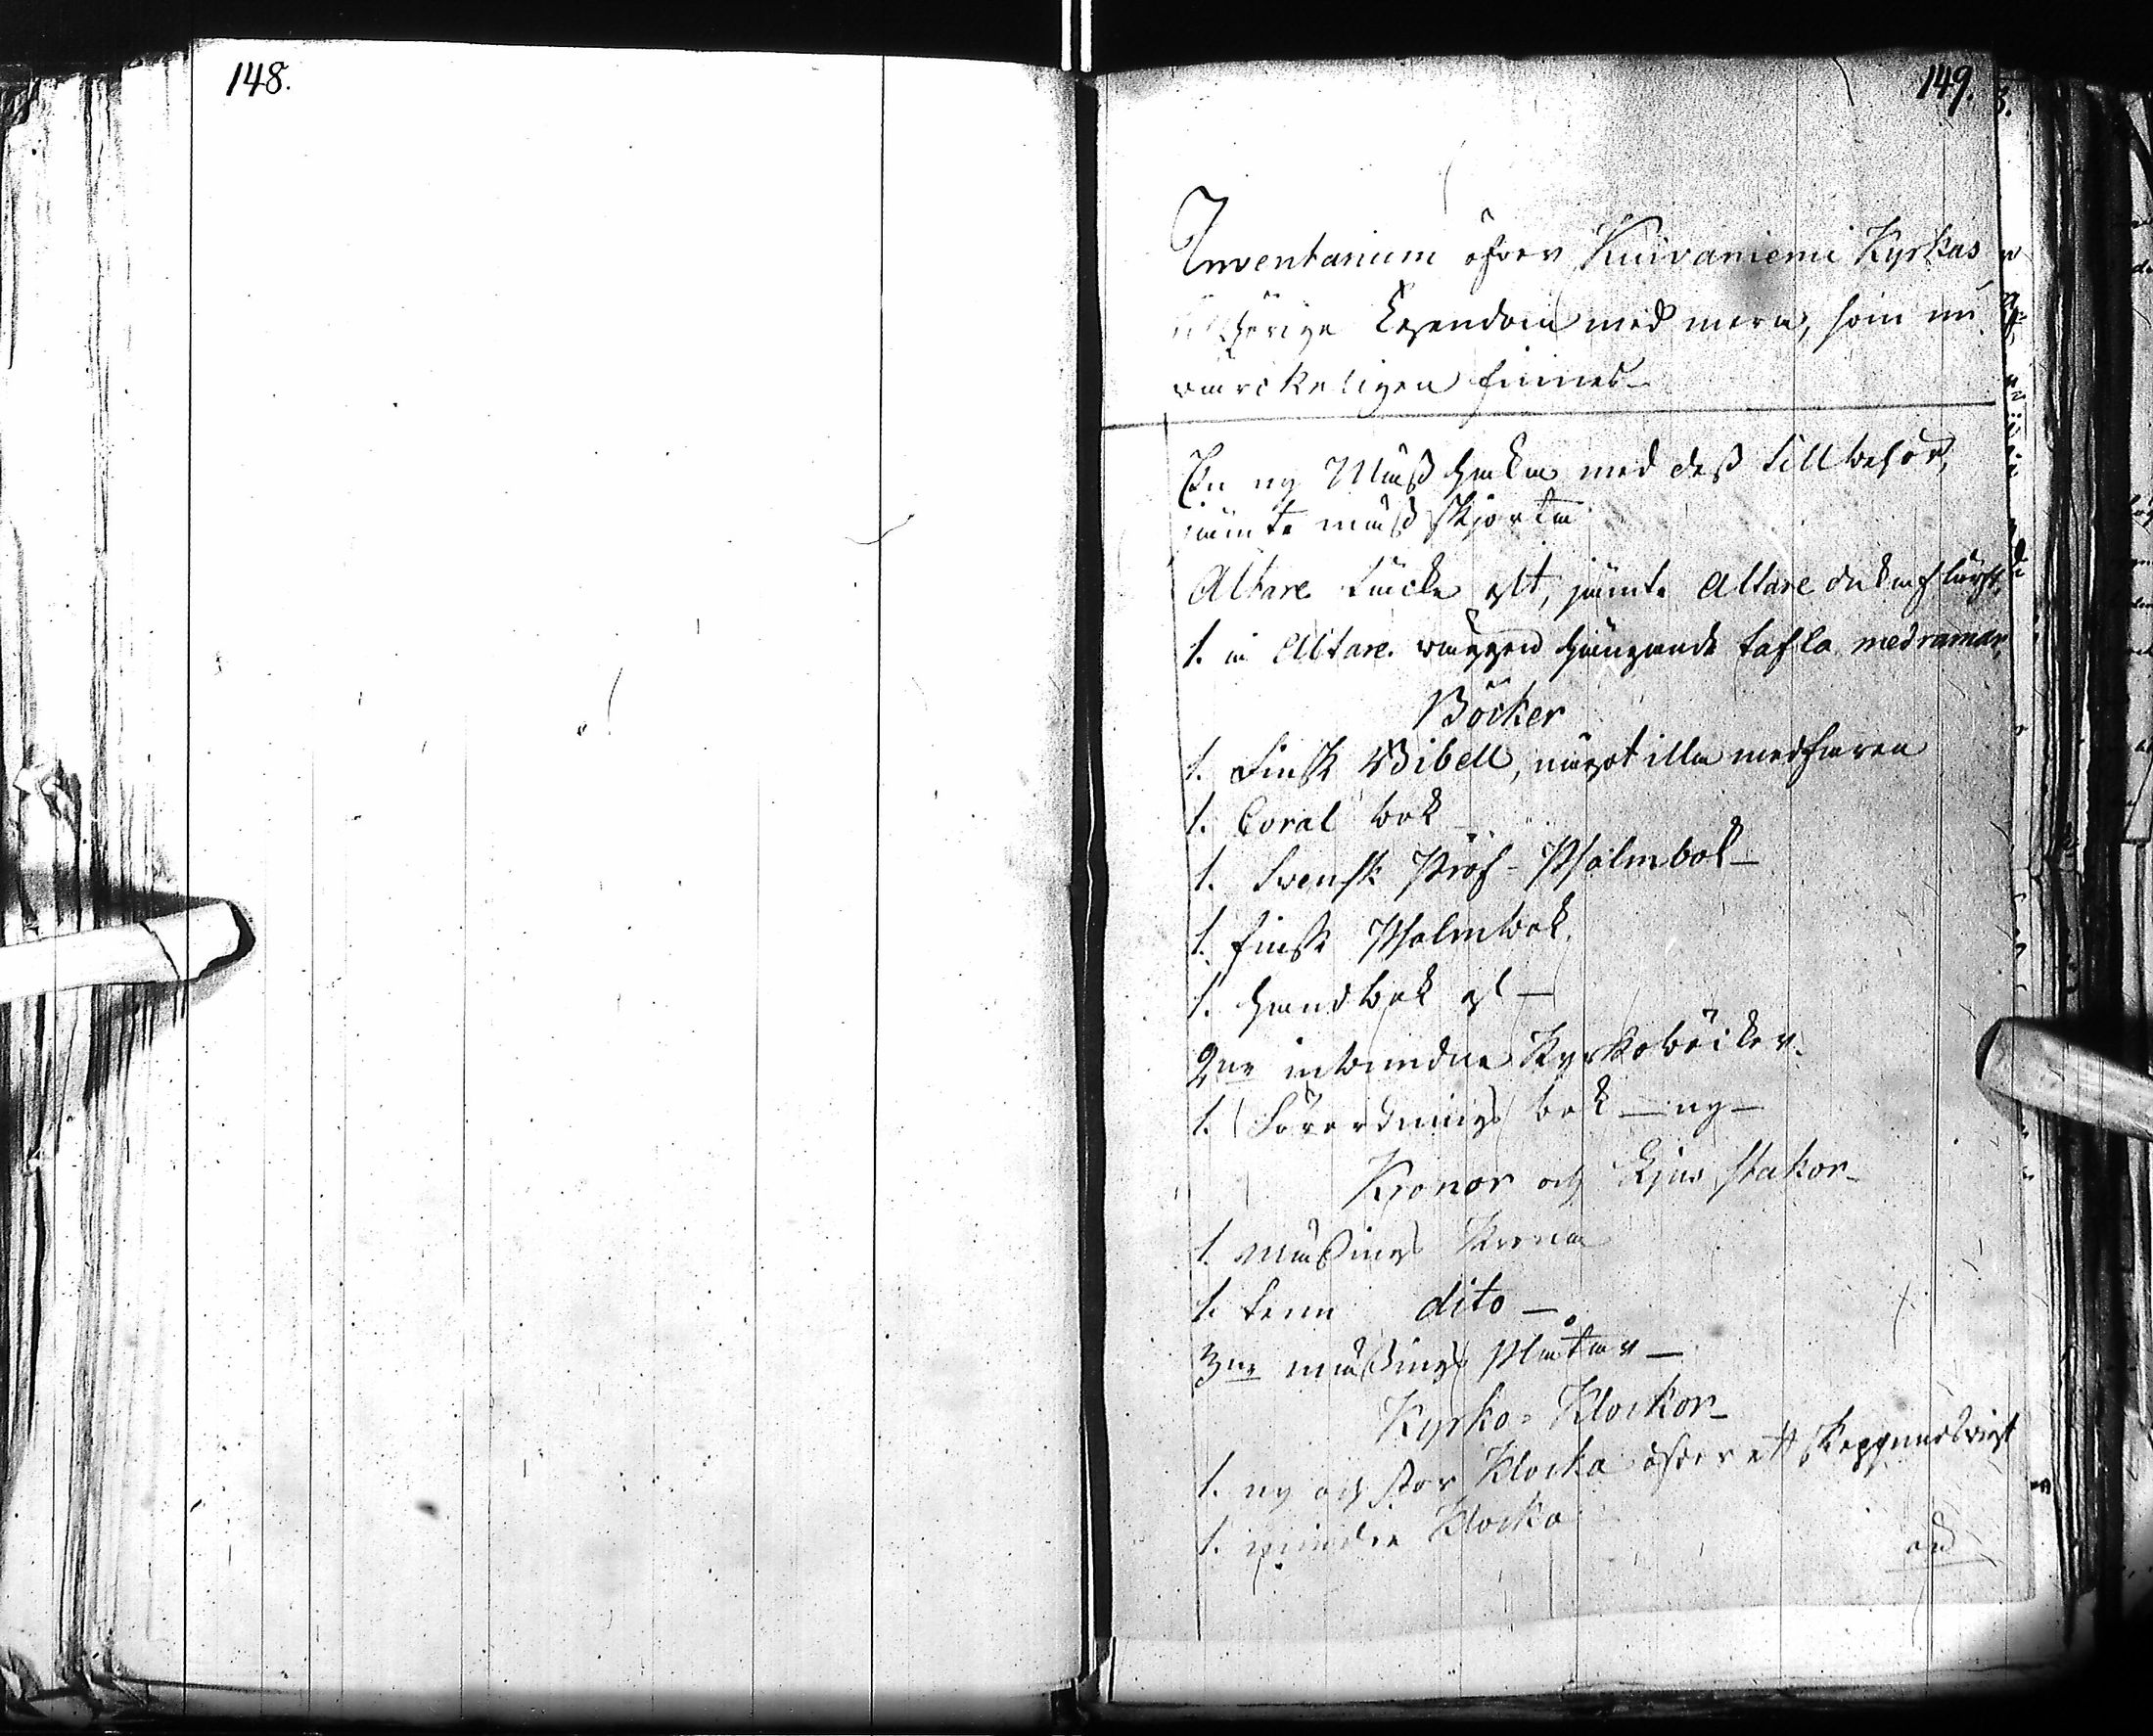 148.
149.
Inventarium öfver Kuivaniemi Kyrkas
tillhörige Egendom med mera, som nu
värckeligen finnes
En ny Mässhacka med dess tillbehör,
jämte mässskjorta
Altare täcke glt, jämte Altare duk af lärft,
1. å Altare väggen hängande tafla med ramar,
Böcker
1. Finsk Bibell, något illa medfaren
1. Coral bok
1. Svensk Prof-Psalmbok
1. finsk Psalmbok.
1. Handbok gl
2ne inbundne Kyrkoböcker.
1. Förordnings bok ny
Kronor och Ljus stakor
1. Mässings Krona
1. tenn dito
3ne mässings Plåtar
Kyrko-Klockor
1. ny och stor Klocka öfver ett Skeppund vigt
1. mindre Klocka